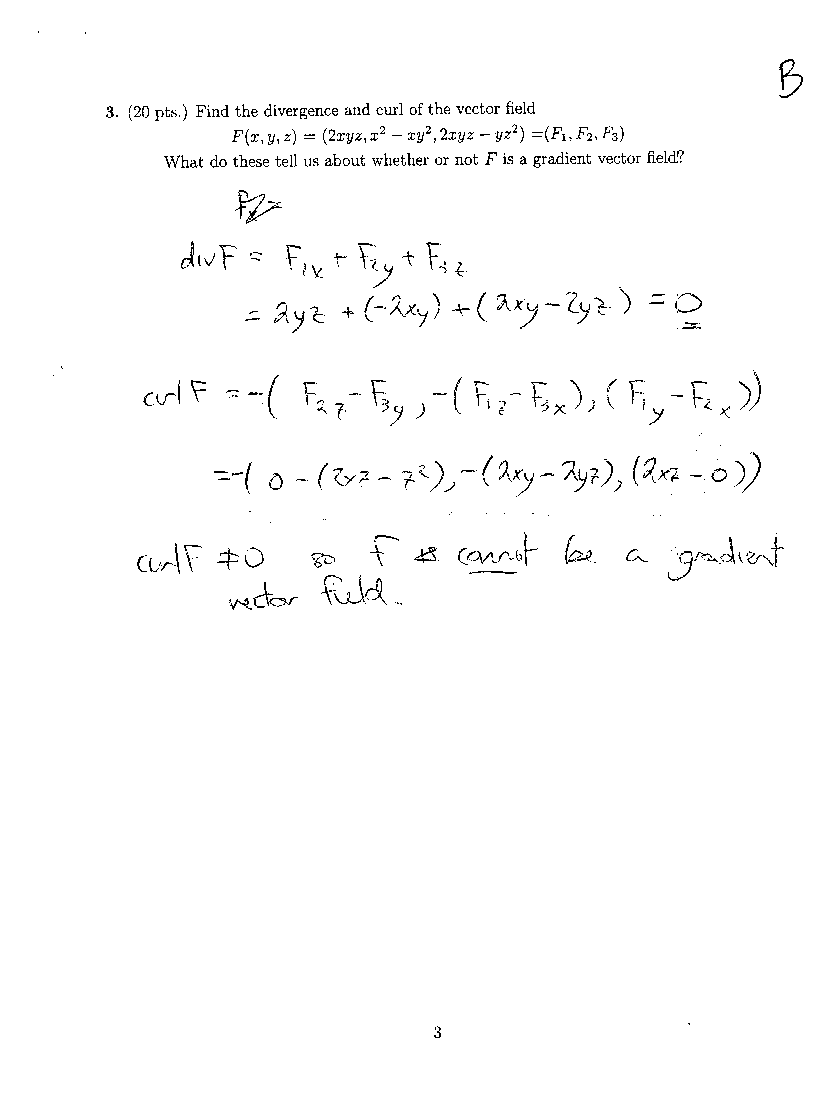 B
3. (20 pts.) Find the divergence and curl of the vector field
F(x, y, z) = (2xyz, x² − xy², 2xyz − yz²) =(F₁, F₂, F₃)
What do these tell us about whether or not F is a gradient vector field?
div F = F₁ₓ + F₂y + F₃z
= 2yz + (−2xy) + (2xy − 2yz) = 0
curl F = −( F₂z − F₃y , −(F₁z − F₃x), (F₁y − F₂x))
= −( 0 − (2xz − z²), −(2xy − 2yz), (2xz − 0))
curl F ≠ 0 so F cannot be a gradient
vector field.
3